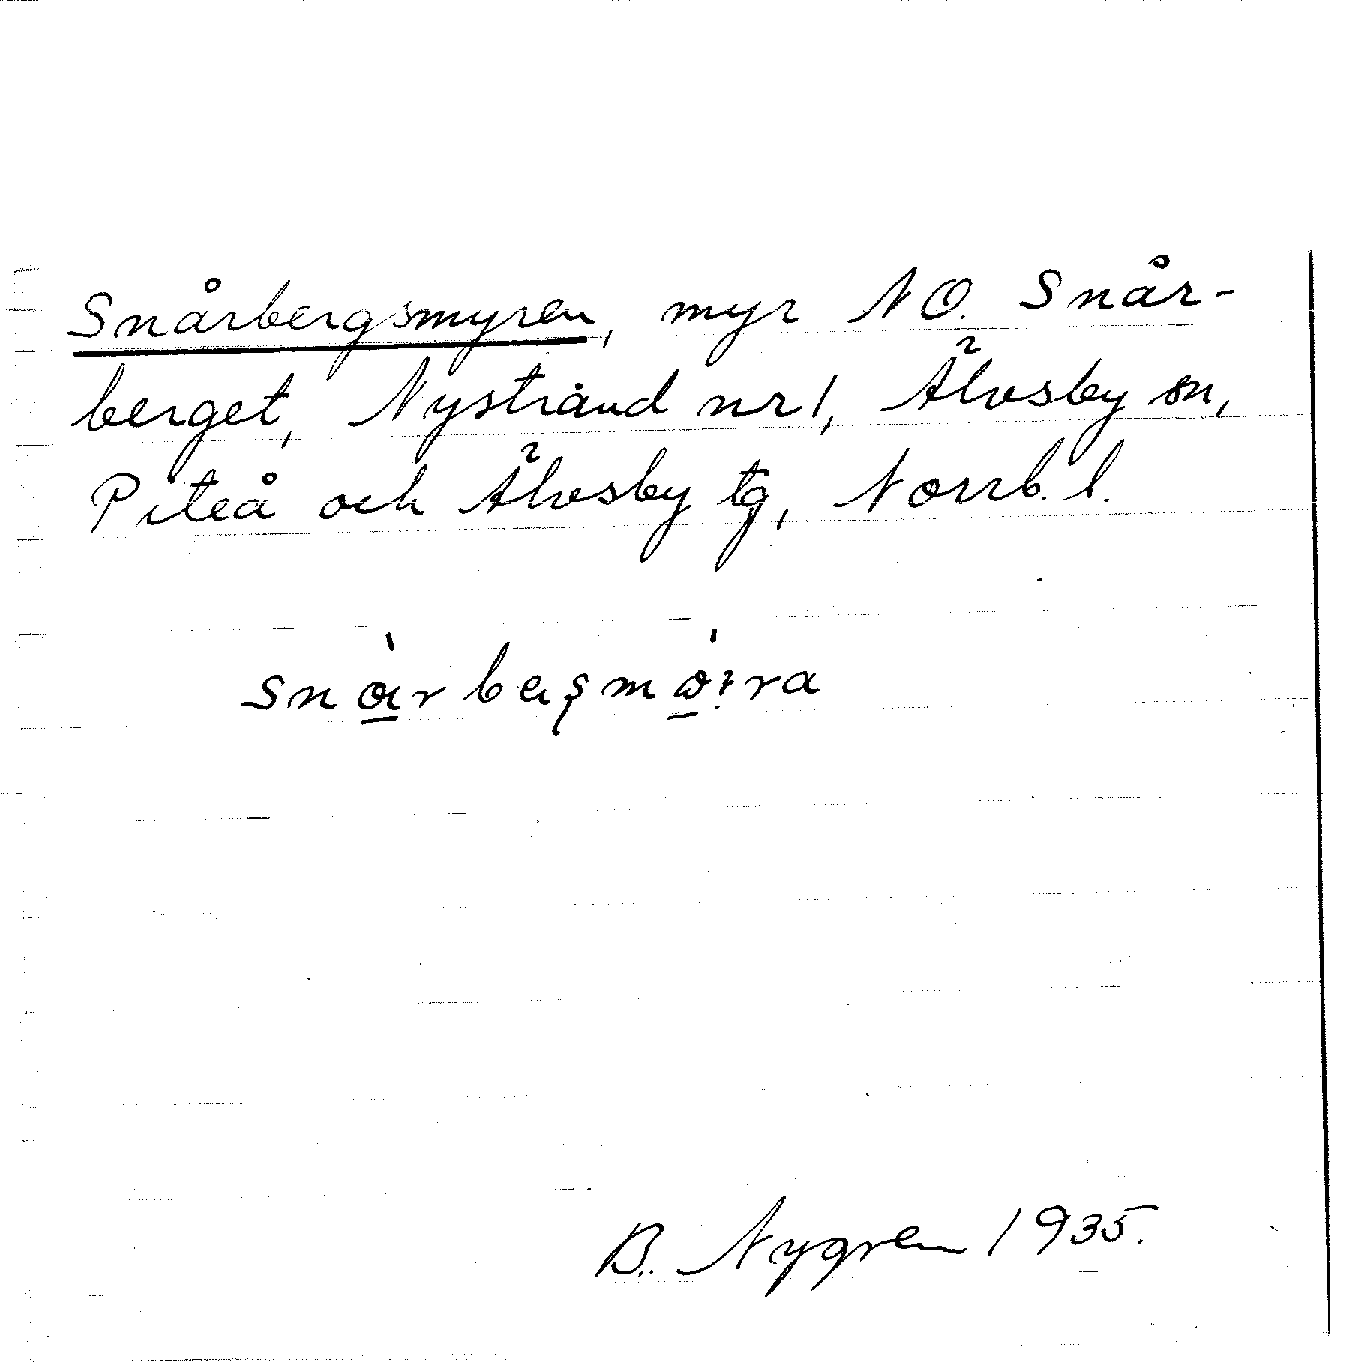 Snårbergsmyren, myr NO. Snår-
berget, Nystrand nr 1, Älvsby sn,
Piteå och Älvsby tg, Norrb. l.
B. Nygren 1935.